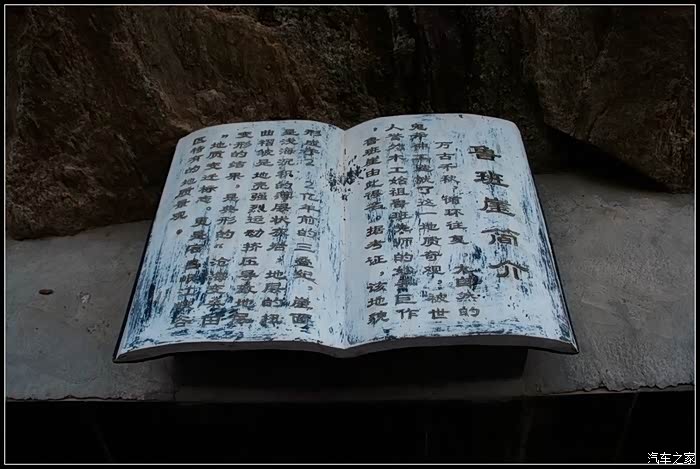 鲁班崖简介
万古千秋，循环往复，大自然的
鬼斧神工成就了这一地质奇观，被世
人赞为木工始祖鲁班大师的线墨巨作
，鲁班崖由此得名。据考证，该地貌
形成于2.2亿年前的三叠纪，崖面
呈浅海沉积的薄层状灰岩，地层的揉
曲褶皱是地壳强烈运动挤压导致地层
变形的结果，是典型的“沧海变桑田
”地质变迁标志，更是
区稀有的地质景观。
汽车之家